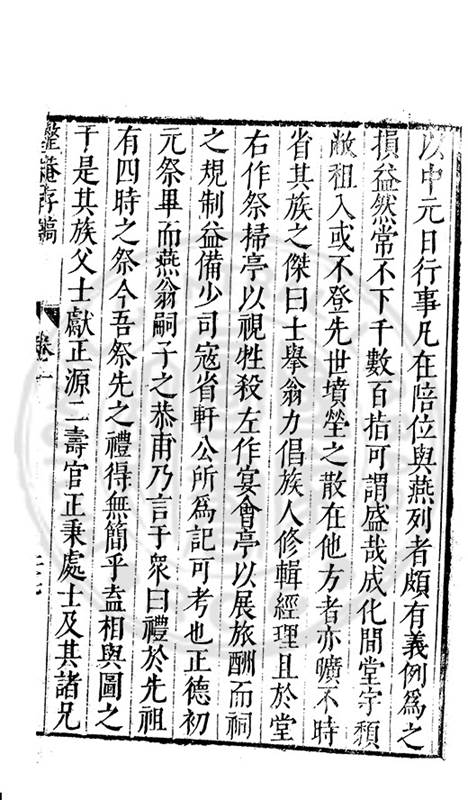 以中元日行事凡在陪位與燕列者頗有義例爲之
損益然常不下千數百指可謂盛哉成化間堂宇頽
敝租入或不登先世墳塋之散在他方者亦曠不時
省其族之傑曰士擧翁力倡族人修輯經理且於堂
右作祭掃亭以視牲殺左作宴會亭以展旅酬而祠
之規制益備少司寇省軒公所爲記可考也正德初
元祭畢而燕翁嗣子之恭甫乃言于衆曰禮於先祖
有四時之祭今吾祭先之禮得無簡乎盍相與圖之
于是其族父士獻正源二壽官正秉處士及其諸兄
存稿
卷一